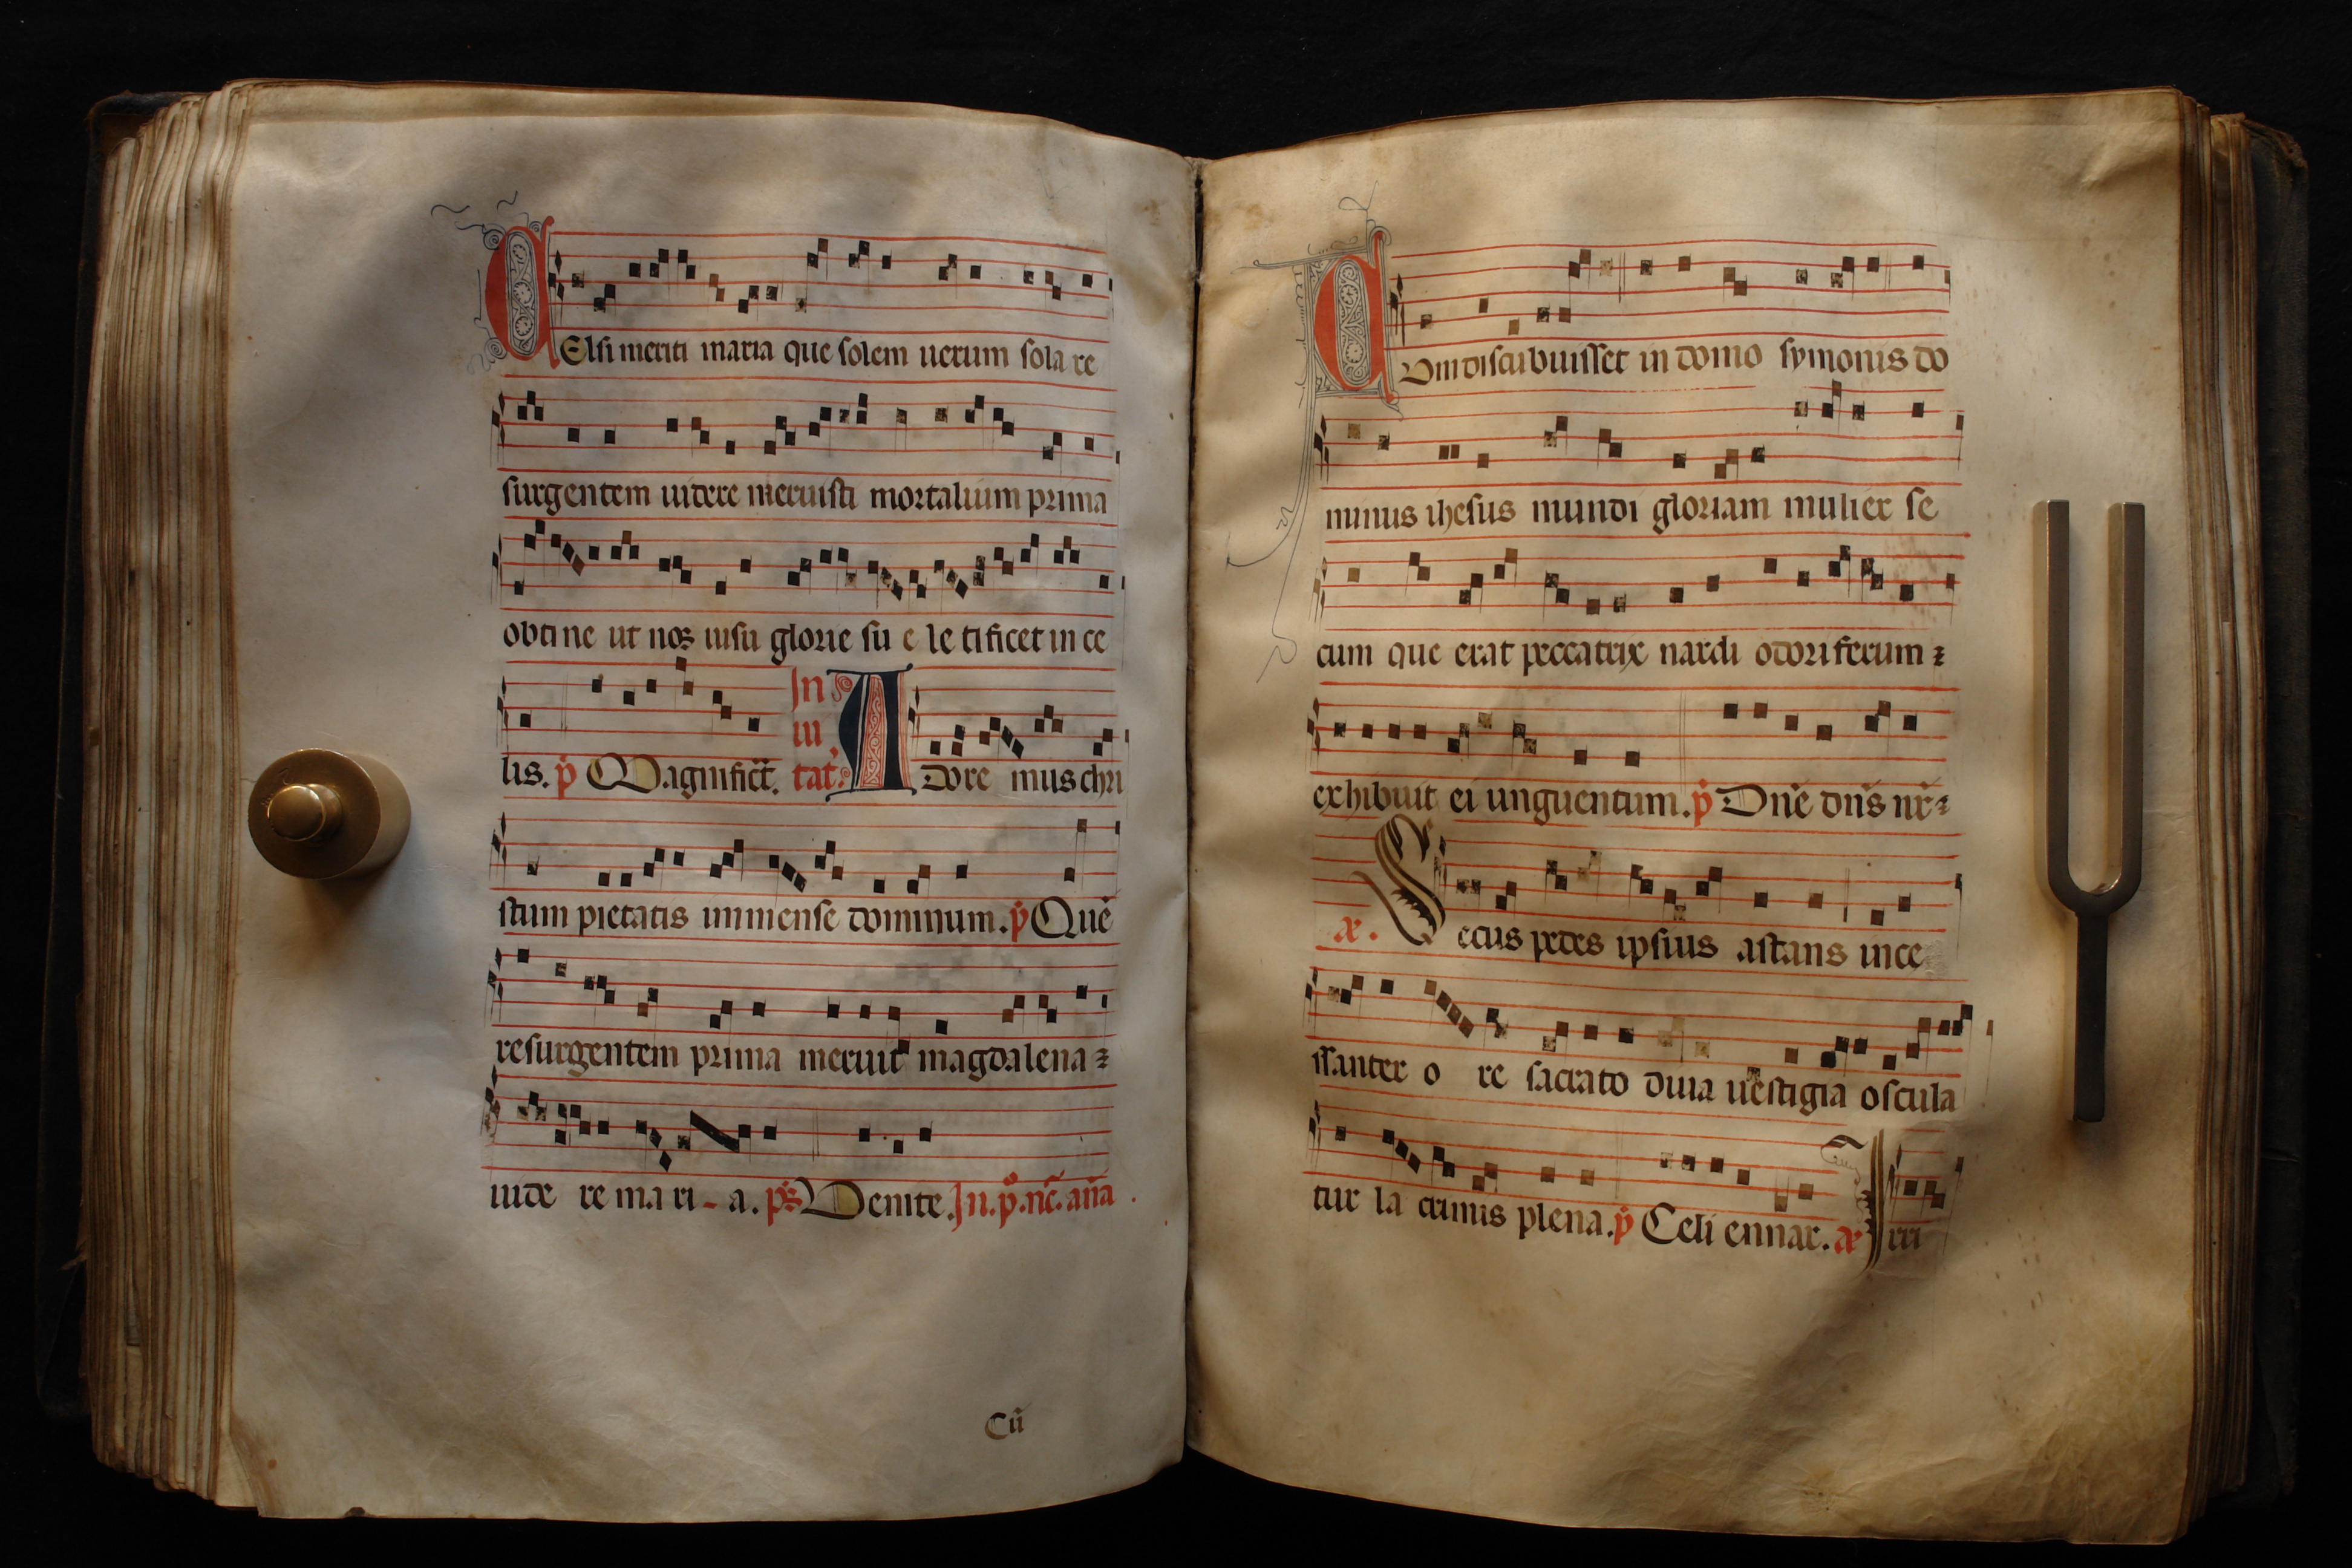 CElsi meriti maria que solem uerum sola re
surgentem uidere meruisti mortalium prima
obtine ut nos uisu glorie su e le tificet in ce
lis. p̄ Magnific̄t. In ui tat. A dore mus chri
stum pietatis immense dominum. p̄ Quē
resurgentem prima meruit magdalena ⁊
uide re ma ri - a. p̄s Uenite. In. p̊. nc̄. an̄a.
Cū
CUm discubuisset in domo symonis do
minus ihesus mundi gloriam mulier se
cum que erat peccatrix nardi odoriferum ⁊
exhibuit ei unguentum. p̄ Dn̄e dn̄s nr̄ ⁊
æ. Secus pedes ipsius astans ince
ssanter o re sacrato diuia uestigia oscula
tur la crimis plena. p̄ Celi ennar. æ Irri